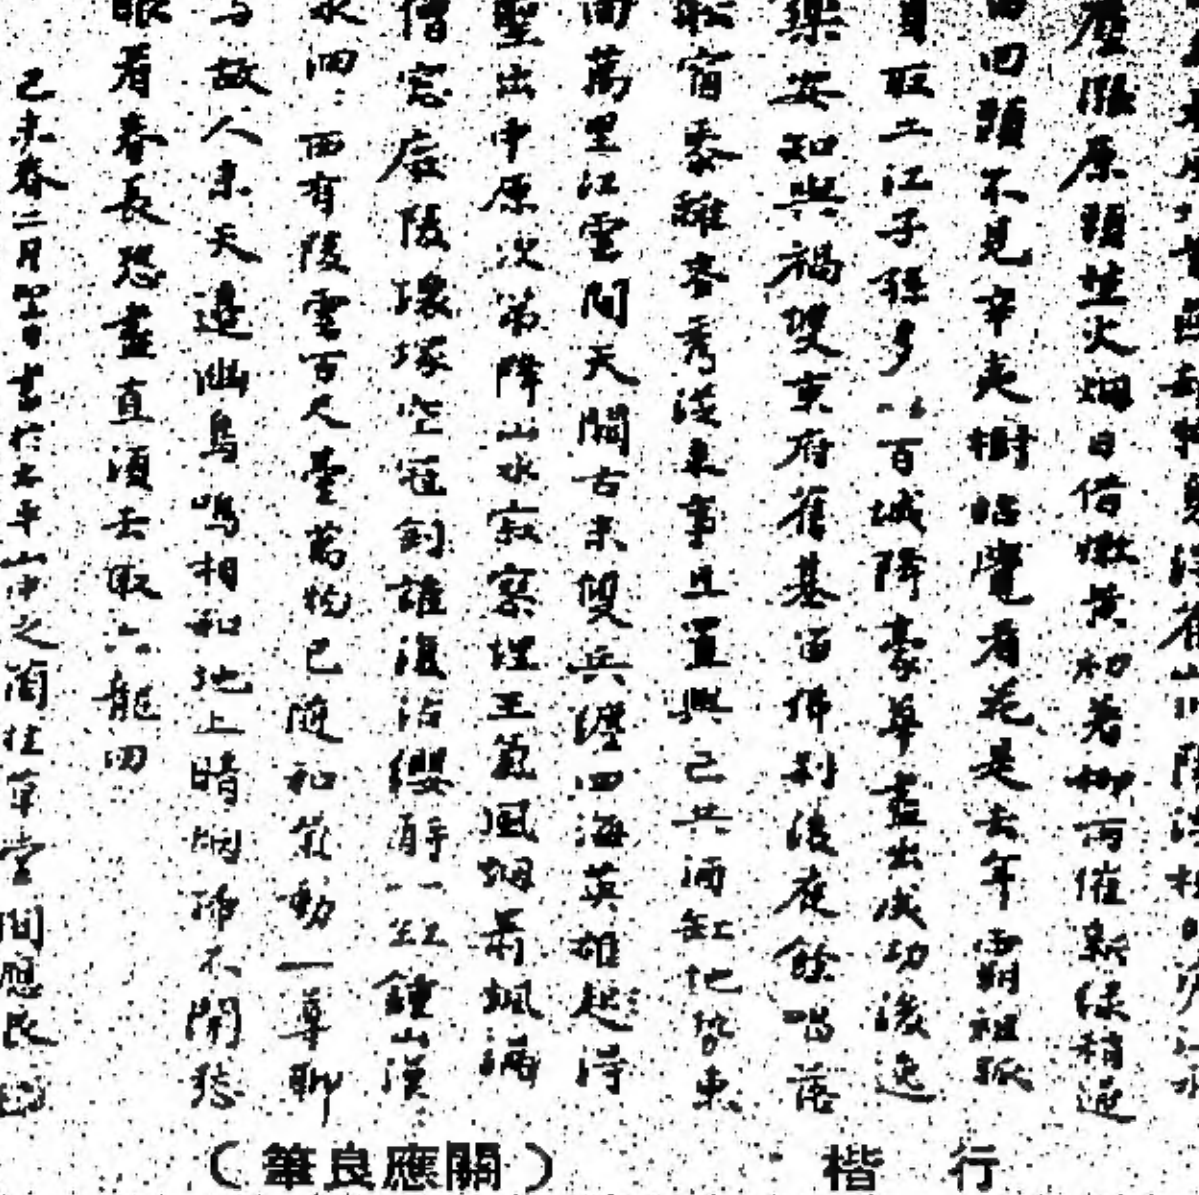 原頭生火烟日借嫩黃初著柳雨催新綠稍歸
田回頭不見辛夷樹始覺看花是去年霸祖孤
身取二江子孫多以百城降豪華盡出成功後逸
樂安知與禍雙東府舊基留佛刹後庭餘唱落
船窗黍離麥秀從來事且置興亡共酒缸地勢東
回萬里江雲間天闕古來雙兵纏四海英雄起得
聖出中原次第降山水寂寥埋王氣風烟蕭颯滿
僧窗廢陵壞冢空冠劍誰復沾纓酹一缸鍾山漠
水洄洄西有陵雲百尺臺萬物已隨和氣動一尊聊
與故人來天邊幽鳥鳴相和地上晴烟掃不開愁
眼看春長恐盡直須去取六龍回
己未春二月望日書於太平山中之蘭桂草堂關應良
行楷
（關應良筆）